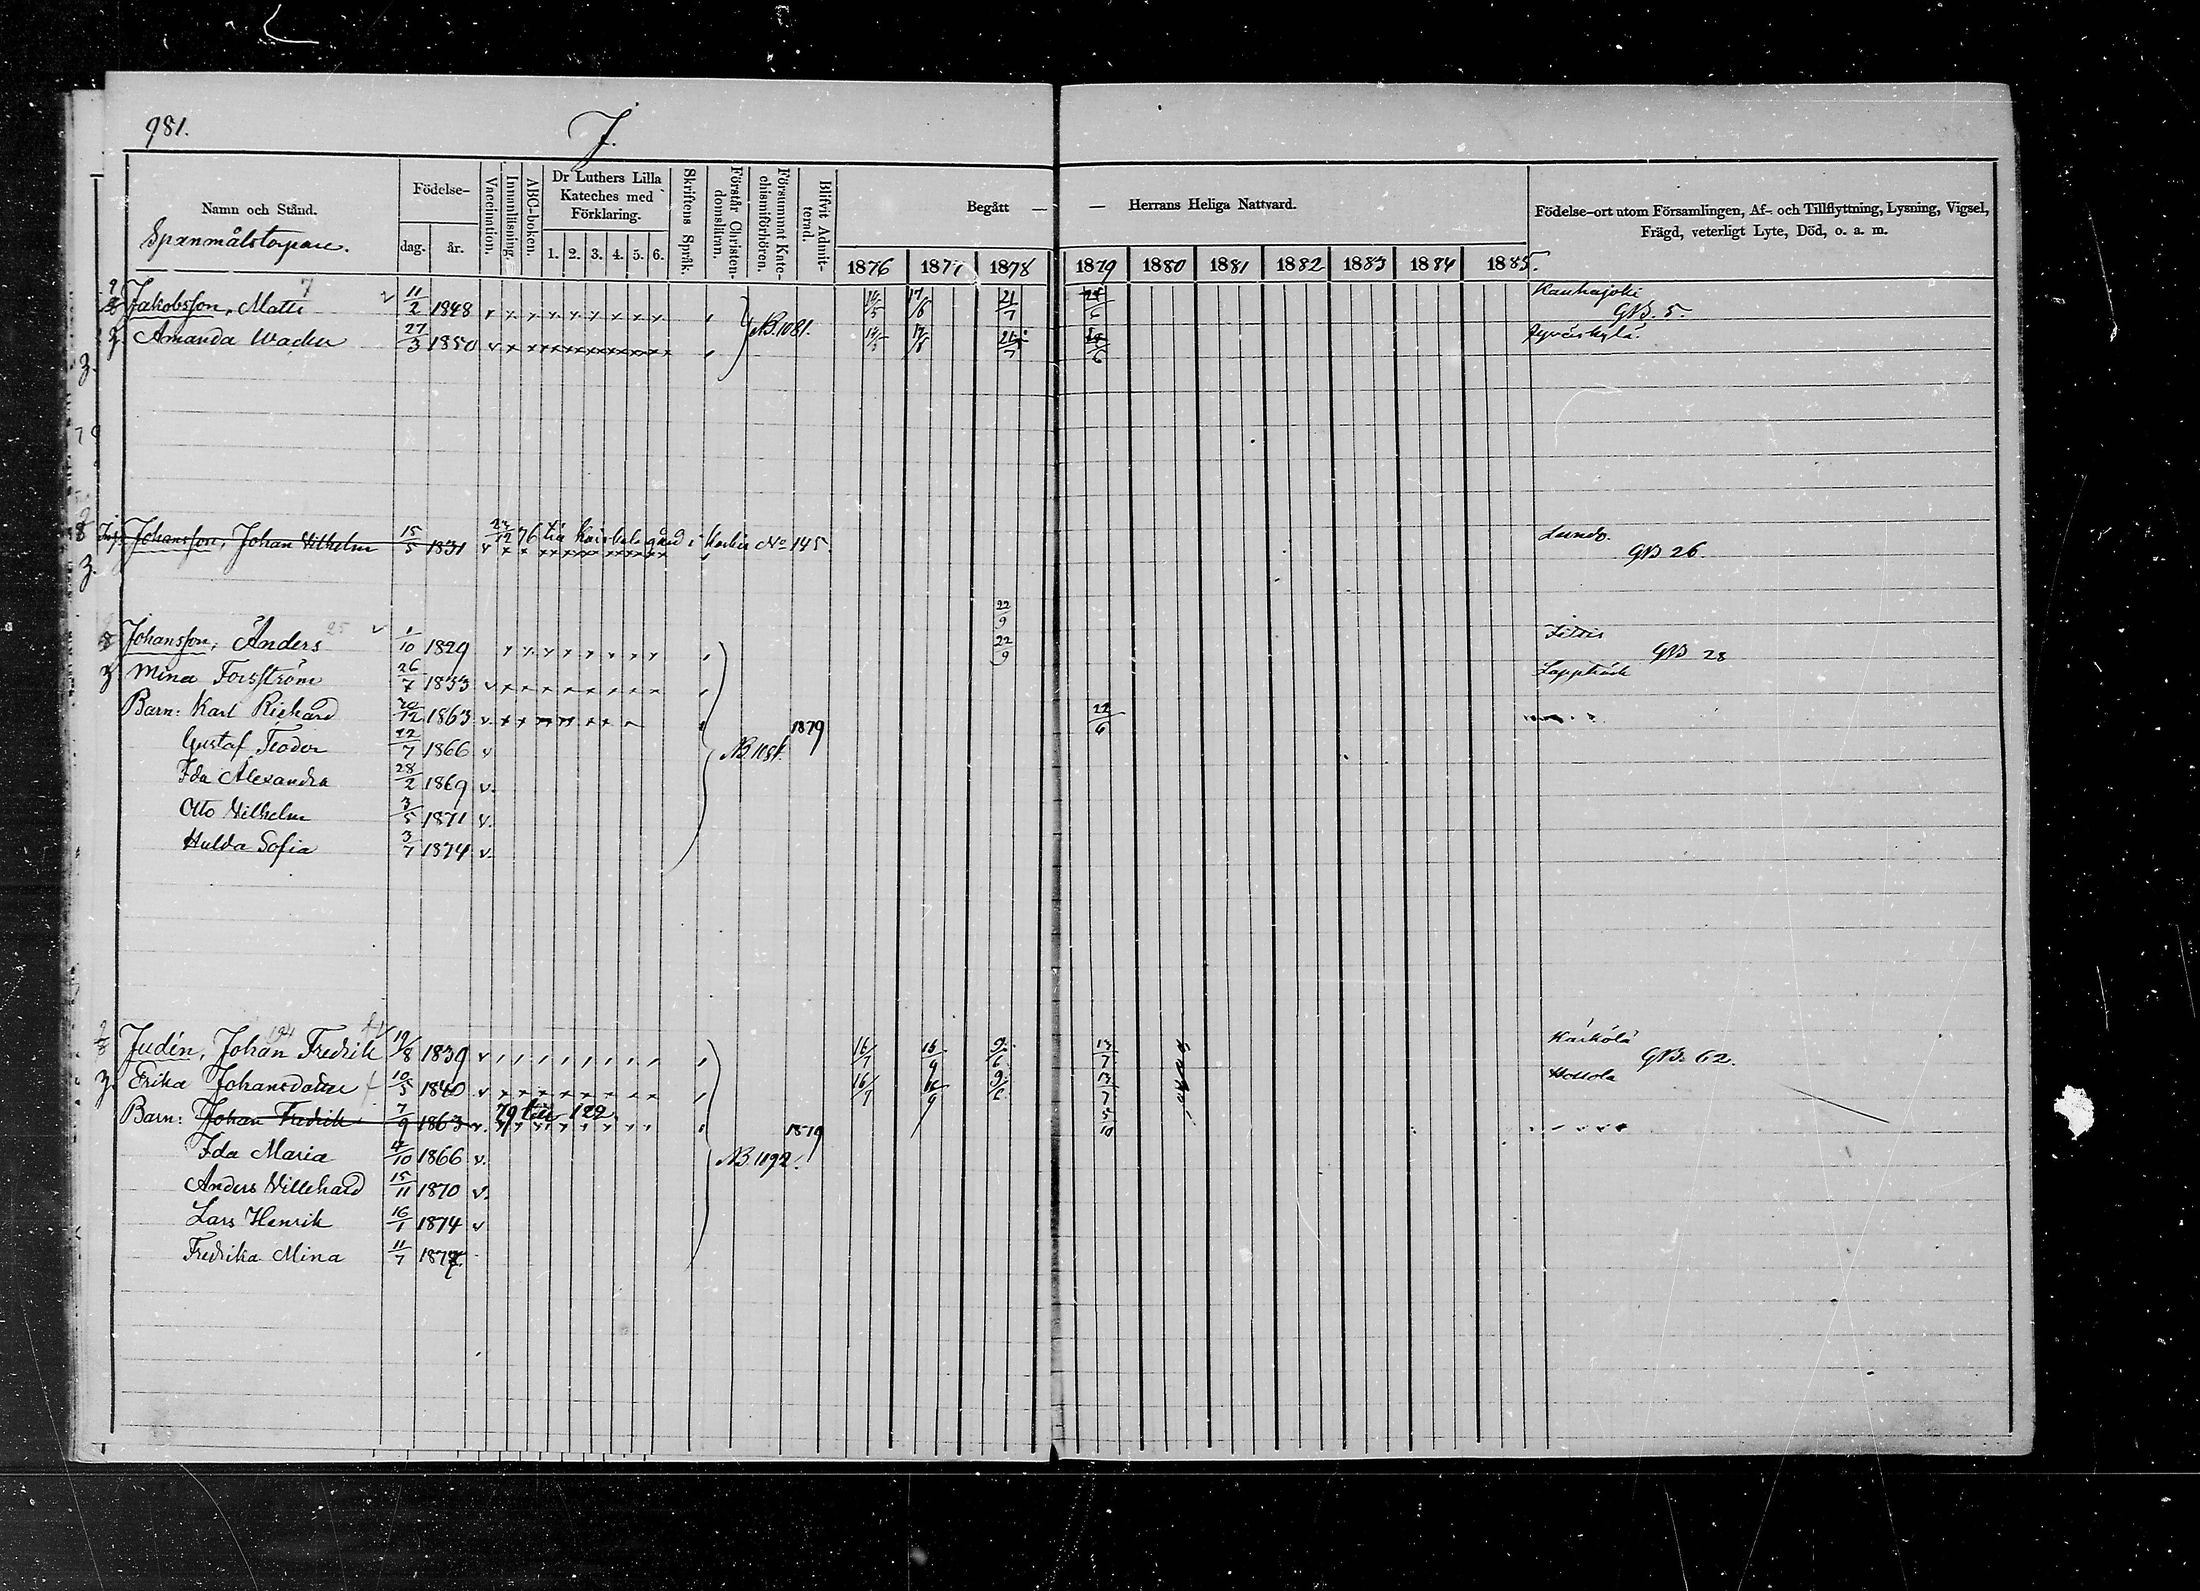 981.
J.
Namn och Stånd.
Spanmålstorpare.
Födelse-
dag.
år.
Vaccination.
Innanläsning.
ABC-boken.
Dr Luthers Lilla
Kateches med
Förklaring.
1. 2. 3. 4. 5. 6.
Skriftens Språk.
Förstår Christen-
domsläran.
Försummat Kate-
chismiförhören.
Blifvit Admit-
terad.
Begått — — Herrans Heliga Nattvard.
1876 1877 1878 1879 1880 1881 1882 1883 1884 1885.
Födelse-ort utom Församlingen, Af- och Tillflyttning, Lysning, Vigsel,
Frägd, veterligt Lyte, Död, o. a. m.
Jakobsson, Matts 11/2 1848 17/6 21/7 Kauhajoki
NB. 1081. GB. 5.
Amanda Wacker 27/3 1850 v 21/7 Jyväskylä.
Johansson, Johan Vilhelm 15/5 1831 v 76 till gård i No 145. Lundo
GB 26.
22/9
Johansson, Anders 1/10 1829 22/9
GB 28
Mina Forsström 26/7 1833 v Lappträsk
Barn: Karl Richard 1863 v 1879 22/6
Gustaf Teodor 22/7 1866 v
Ida Alexandra 28/2 1869 v.
Otto Vilhelm 3/5 1871 v.
Hulda Sofia 3/7 1874 v.
Judin, Johan Fredrik 19/8 1839 v 16/7 16/9 9/6 13/7 Kärkölä
GB. 62.
Erika Johansdotter 10/5 1840 v 16/7 16/9 9/6 13/7 Hollola
Barn: Johan Fredrik 7/9 1863 v. 79 till 122. 1879 5/10
Ida Maria 1866 v. NB. 1092.
Anders Villehard 15/11 1870 v.
Lars Henrik 16/1 1874 v
Fredrika Mina 11/7 1877.